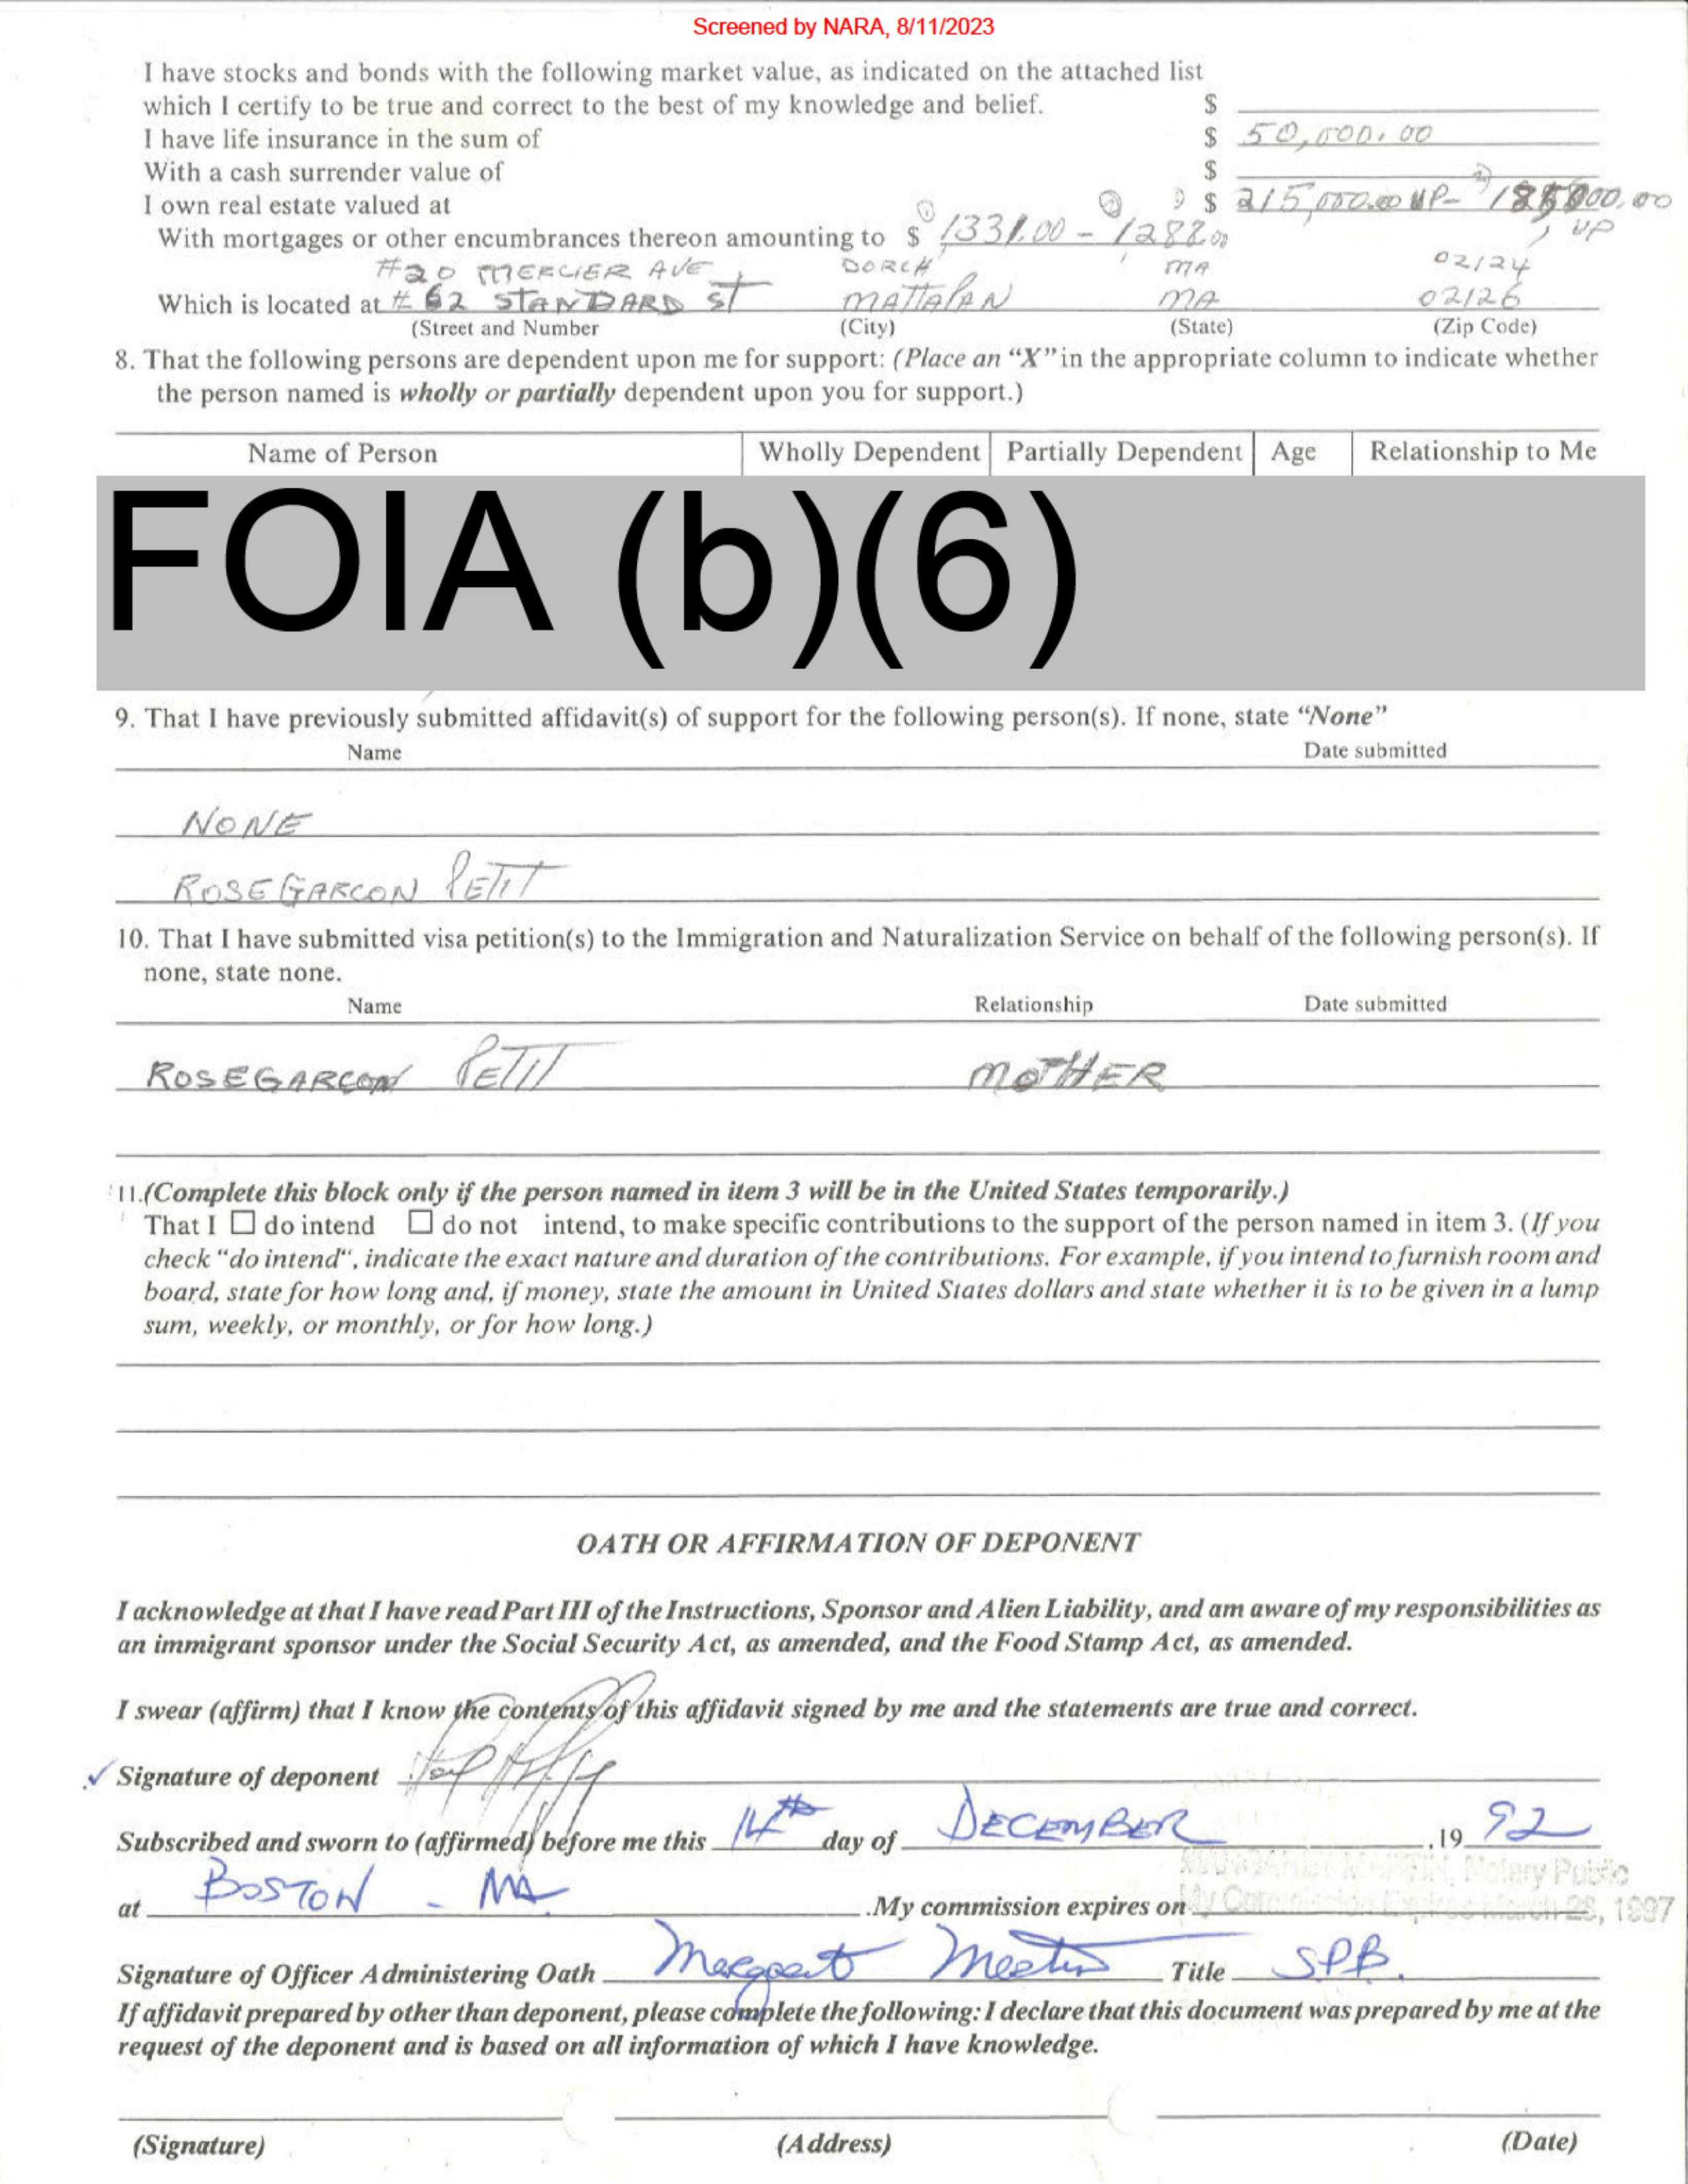 Screened by NARA, 8/11/2023
I have stocks and bonds with the following market value, as indicated on the attached list
which I certify to be true and correct to the best of my knowledge and belief. $
I have life insurance in the sum of $ 50,000.00
With a cash surrender value of $
I own real estate valued at $ 215,000.00 UP- 000.00
UP
With mortgages or other encumbrances thereon amounting to $ 1331.00 - 1288.00
#20 MERCIER AVE DORCH MA 02124
Which is located at # 62 STANDARD ST MATTAPAN MA 02126
(Street and Number (City) (State) (Zip Code)
8. That the following persons are dependent upon me for support: (Place an “X” in the appropriate column to indicate whether
the person named is wholly or partially dependent upon you for support.)
Name of Person Wholly Dependent Partially Dependent Age Relationship to Me
FOIA (b)(6)
9. That I have previously submitted affidavit(s) of support for the following person(s). If none, state “None”
Name Date submitted
NONE
ROSEGARCON PETIT
10. That I have submitted visa petition(s) to the Immigration and Naturalization Service on behalf of the following person(s). If
none, state none.
Name Relationship Date submitted
ROSEGARCON PETIT MOTHER
11.(Complete this block only if the person named in item 3 will be in the United States temporarily.)
That I ☐ do intend ☐ do not intend, to make specific contributions to the support of the person named in item 3. (If you
check “do intend“, indicate the exact nature and duration of the contributions. For example, if you intend to furnish room and
board, state for how long and, if money, state the amount in United States dollars and state whether it is to be given in a lump
sum, weekly, or monthly, or for how long.)
OATH OR AFFIRMATION OF DEPONENT
I acknowledge at that I have read Part III of the Instructions, Sponsor and Alien Liability, and am aware of my responsibilities as
an immigrant sponsor under the Social Security Act, as amended, and the Food Stamp Act, as amended.
I swear (affirm) that I know the contents of this affidavit signed by me and the statements are true and correct.
Signature of deponent
Subscribed and sworn to (affirmed) before me this 14th day of DECEMBER ,19 92
MARTIN, Notary Public
at BOSTON - MA .My commission expires on My Commission Expires March 28, 1997
Signature of Officer Administering Oath Margaret Martin Title SPB.
If affidavit prepared by other than deponent, please complete the following: I declare that this document was prepared by me at the
request of the deponent and is based on all information of which I have knowledge.
(Signature) (Address) (Date)